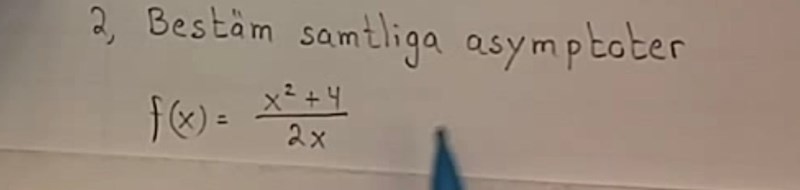 2, Bestäm samtliga asymptoter
f(x) = x² + 4 / 2x